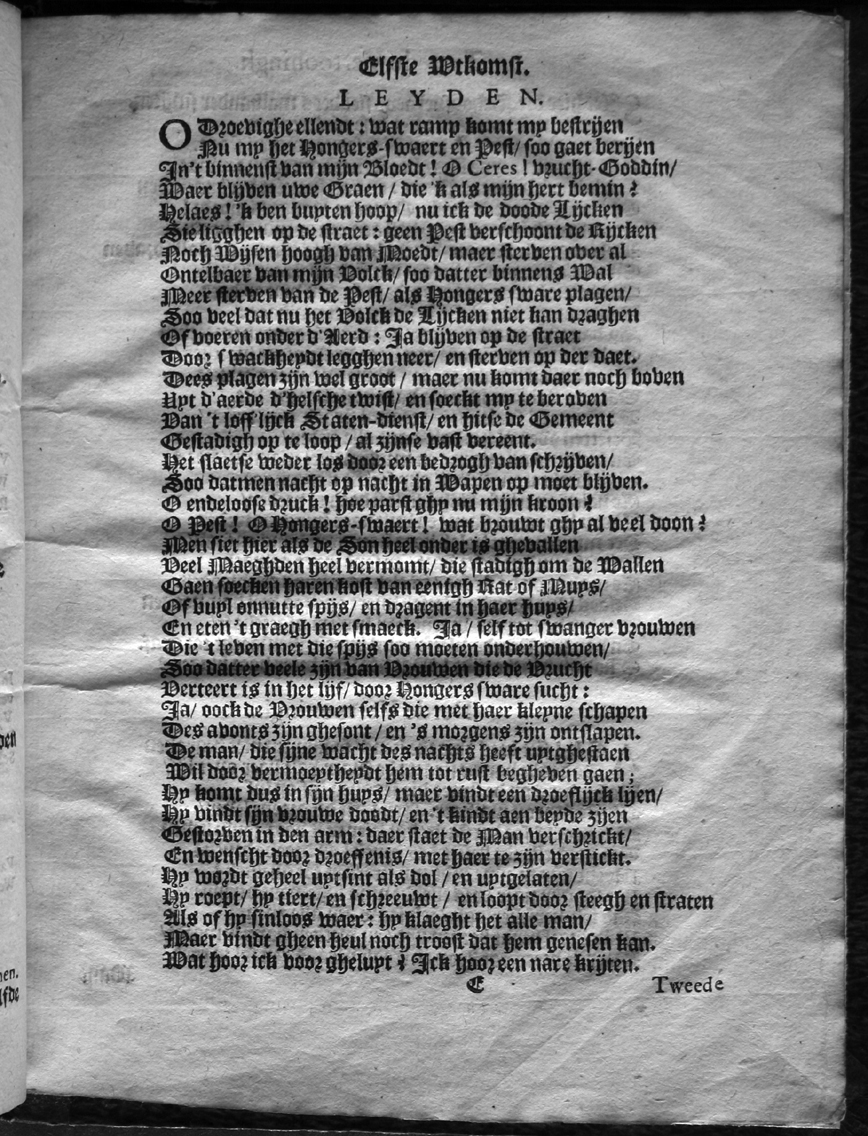 Elfste Wtkomst.
LEYDEN.
O Droevighe ellendt : wat ramp komt my bestrijen
Nu my het Hongers-swaert en Pest/ soo gaet berijen
In't binnenst van mijn Bloedt! O Ceres! vrucht-Goddin/
Waer blijven uwe Graen / die 'k als mijn hert bemin?
Helaes! 'k ben buyten hoop/ nu ick de doode Lijcken
Sie ligghen op de straet : geen Pest verschoont de Rijcken
Noch Wijsen hoogh van Moedt/ maer sterven over al
Ontelbaer van mijn Volck/ soo datter binnens Wal
Meer sterven van de Pest/ als Hongers sware plagen/
Soo veel dat nu het Volck de Lijcken niet kan draghen
Of voeren onder d'Aerd : Ja blijven op de straet
Door swackheydt legghen neer/ en sterven op der daet.
Dees plagen zijn wel groot / maer nu komt daer noch boven
Uyt d'aerde d'helsche twist/ en soeckt my te beroven
Van 't loff'lijck Staten-dienst/ en hitse de Gemeent
Gestadigh op te loop / al zijnse vast vereent.
Het slaetse weder los door een bedrogh van schrijven/
Soo datmen nacht op nacht in Wapen op moet blijven.
O endeloose druck! hoe parst ghy nu mijn kroon?
O Pest! O Hongers-swaert! wat brouwt ghy al veel doon?
Men siet hier als de Son heel onder is ghevallen
Veel Maeghden heel vermomt/ die stadigh om de Wallen
Gaen soecken haren kost van eenigh Kat of Muys/
Of vuyl onnutte spijs/ en dragent in haer huys/
En eten 't graegh met smaeck. Ja/ self tot swanger vrouwen
Die 't leven met die spijs soo moeten onderhouwen/
Soo datter veele zijn van Vrouwen die de Vrucht
Verteert is in het lijf/ door Hongers sware sucht :
Ja/ oock de Vrouwen selfs die met haer kleyne schapen
Des avonts zijn ghesont / en 's morgens zijn ontslapen.
De man/ die sijne wacht des nachts heeft uytghestaen
Wil door vermoeytheydt hem tot rust begheven gaen;
Hy komt dus in sijn huys/ maer vindt een droeflijck lijen/
Hy vindt sijn vrouwe doodt/ en 't kindt aen beyde zijen
Gestorven in den arm : daer staet de Man verschrickt/
En wenscht door droeffenis/ met haer te zijn verstickt.
Hy wordt geheel uytsint als dol / en uytgelaten/
Hy roept/ hy tiert/ en schreeuwt / en loopt door steegh en straten
Als of hy sinloos waer : hy klaeght het alle man/
Maer vindt gheen heul noch troost dat hem genesen kan.
Wat hoor ick voor gheluyt? Ick hoor een nare krijten.
E Tweede